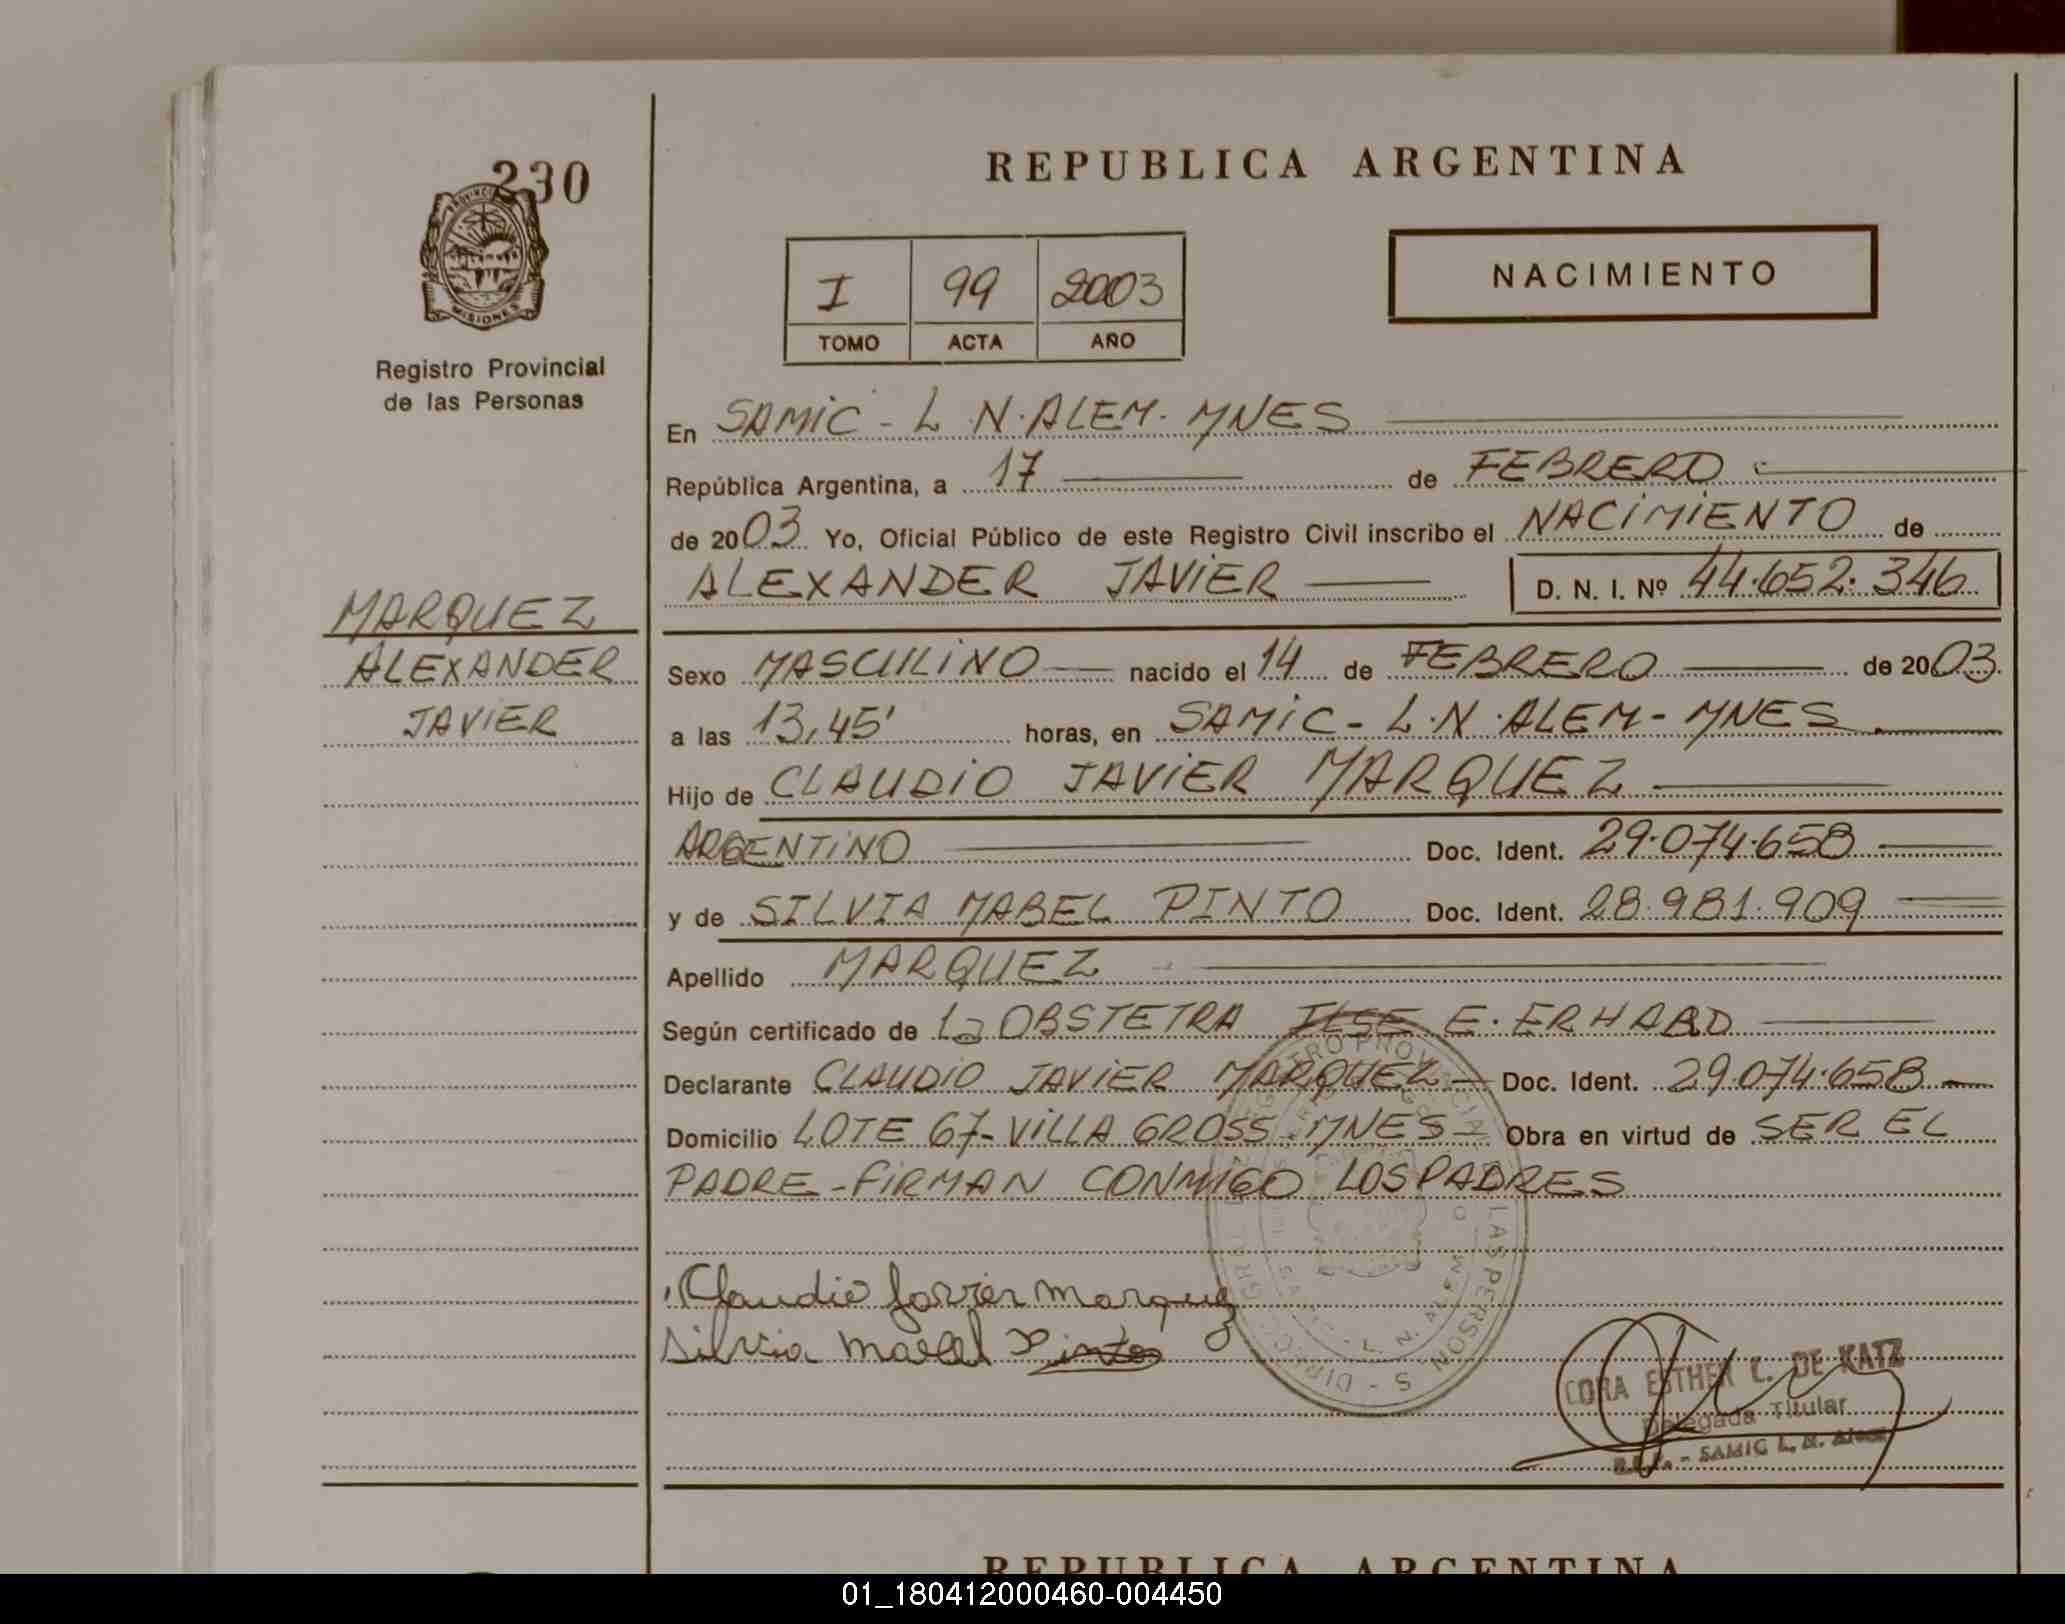 230
PROVINCIA
MISIONES
Registro Provincial
de las Personas
MARQUEZ
ALEXANDER
JAVIER
REPUBLICA ARGENTINA
I 99 2003
TOMO ACTA AÑO
NACIMIENTO
En SAMIC - L N. ALEM - MNES
República Argentina, a 17 de FEBRERO
de 2003 Yo, Oficial Público de este Registro Civil inscribo el NACIMIENTO de
ALEXANDER JAVIER D. N. I. Nº 44.652.346
Sexo MASCULINO nacido el 14 de FEBRERO de 2003
a las 13,45' horas, en SAMIC - L.N. ALEM - MNES
Hijo de CLAUDIO JAVIER MARQUEZ
ARGENTINO Doc. Ident. 29.074.658
y de SILVIA MABEL PINTO Doc. Ident. 28.981.909
Apellido MARQUEZ
Según certificado de La OBSTETRA ILSE E. ERHARD
Declarante CLAUDIO JAVIER MARQUEZ - Doc. Ident. 29.074.658
Domicilio LOTE 67 - VILLA GROSS - MNES - Obra en virtud de SER EL
PADRE - FIRMAN CONMIGO LOS PADRES
Claudio Javier Marquez
Silvia Mabel Pinto
CORA ESTHER L. DE KATZ
Delegada Titular
SAMIC L. N. Alem
REPUBLICA ARGENTINA
01_180412000460-004450